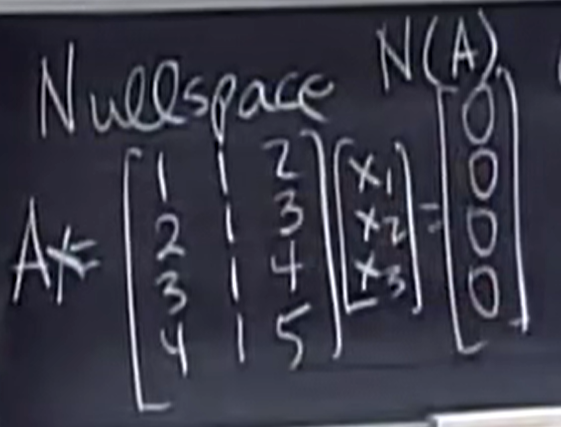 Nullspace N(A)
Ax = [1 1 2; 2 1 3; 3 1 4; 4 1 5] [x₁; x₂; x₃] = [0; 0; 0; 0]